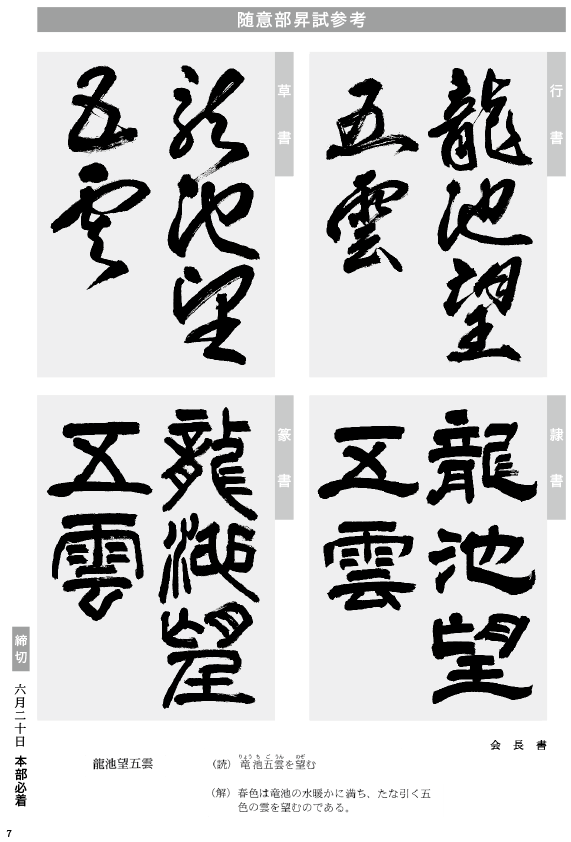 随意部昇試参考
行書
龍池望
五雲
草書
龍池望
五雲
隷書
龍池望
五雲
篆書
龍池望
五雲
会長書
締切
六月二十日 本部必着
龍池望五雲
(読) 竜池五雲を望む
りょうちごうん のぞ
(解) 春色は竜池の水暖かに満ち、たな引く五
色の雲を望むのである。
7